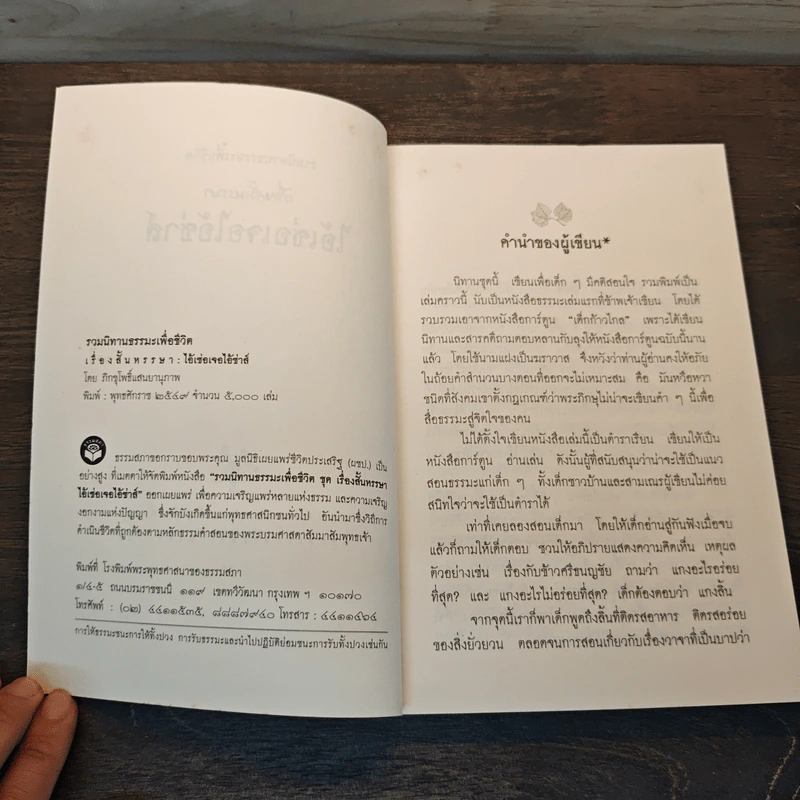 รวมนิทานธรรมะเพื่อชีวิต
เรื่องสั้นหรรษา : ไอ้เช่อเจอไอ้ซ่าส์
โดย ภิกขุโพธิ์แสนยานุภาพ
พิมพ์ : พุทธศักราช ๒๕๔๙ จำนวน ๕,๐๐๐ เล่ม
ธรรมสภาขอกราบขอบพระคุณ มูลนิธิเผยแพร่ชีวิตประเสริฐ (ผชป.) เป็น
อย่างสูง ที่เมตตาให้จัดพิมพ์หนังสือ "รวมนิทานธรรมะเพื่อชีวิต ชุด เรื่องสั้นหรรษา
ไอ้เช่อเจอไอ้ซ่าส์" ออกเผยแพร่ เพื่อความเจริญแพร่หลายแห่งธรรม และความเจริญ
งอกงามแห่งปัญญา ซึ่งจักบังเกิดขึ้นแก่พุทธศาสนิกชนทั่วไป อันนำมาซึ่งวิถีการ
ดำเนินชีวิตที่ถูกต้องตามหลักธรรมคำสอนของพระบรมศาสดาสัมมาสัมพุทธเจ้า
พิมพ์ที่ โรงพิมพ์พระพุทธศาสนาของธรรมสภา
๑/๔-๕ ถนนบรมราชชนนี ๑๑๙ เขตทวีวัฒนา กรุงเทพ ฯ ๑๐๑๗๐
โทรศัพท์ : (๐๒) ๔๔๑๑๕๓๕, ๘๘๘๗๙๔๐ โทรสาร : ๔๔๑๑๔๖๔
การให้ธรรมะชนะการให้ทั้งปวง การรับธรรมะและนำไปปฏิบัติย่อมชนะการรับทั้งปวงเช่นกัน
คำนำของผู้เขียน*
นิทานชุดนี้ เขียนเพื่อเด็ก ๆ มีคติสอนใจ รวมพิมพ์เป็น
เล่มคราวนี้ นับเป็นหนังสือธรรมะเล่มแรกที่ข้าพเจ้าเขียน โดยได้
รวบรวมเอาจากหนังสือการ์ตูน "เด็กก้าวไกล" เพราะได้เขียน
นิทานและสารคดีถามตอบหลานกับลุงให้หนังสือการ์ตูนฉบับนี้นาน
แล้ว โดยใช้นามแฝงเป็นฆราวาส จึงหวังว่าท่านผู้อ่านคงให้อภัย
ในถ้อยคำสำนวนบางตอนที่ออกจะไม่เหมาะสม คือ มันหรือหวา
ชนิดที่สังคมเขาตั้งกฎเกณฑ์ว่าพระภิกษุไม่น่าจะเขียนคำ ๆ นี้เพื่อ
สื่อธรรมะสู่จิตใจของคน
ไม่ได้ตั้งใจเขียนหนังสือเล่มนี้เป็นตำราเรียน เขียนให้เป็น
หนังสือการ์ตูน อ่านเล่น ดังนั้นผู้ที่สนับสนุนว่าน่าจะใช้เป็นแนว
สอนธรรมะแก่เด็ก ๆ ทั้งเด็กชาวบ้านและสามเณรผู้เขียนไม่ค่อย
สนิทใจว่าจะใช้เป็นตำราได้
เท่าที่เคยลองสอนเด็กมา โดยให้เด็กอ่านสู่กันฟังเมื่อจบ
แล้วก็ถามให้เด็กตอบ ชวนให้อภิปรายแสดงความคิดเห็น เหตุผล
ตัวอย่างเช่น เรื่องกับข้าวศรีธนญชัย ถามว่า แกงอะไรอร่อย
ที่สุด? และ แกงอะไรไม่อร่อยที่สุด? เด็กต้องตอบว่า แกงลิ้น
จากจุดนี้เราก็พาเด็กพูดถึงลิ้นที่ติดรสอาหาร ติดรสอร่อย
ของสิ่งยั่วยวน ตลอดจนการสอนเกี่ยวกับเรื่องวาจาที่เป็นบาปว่า